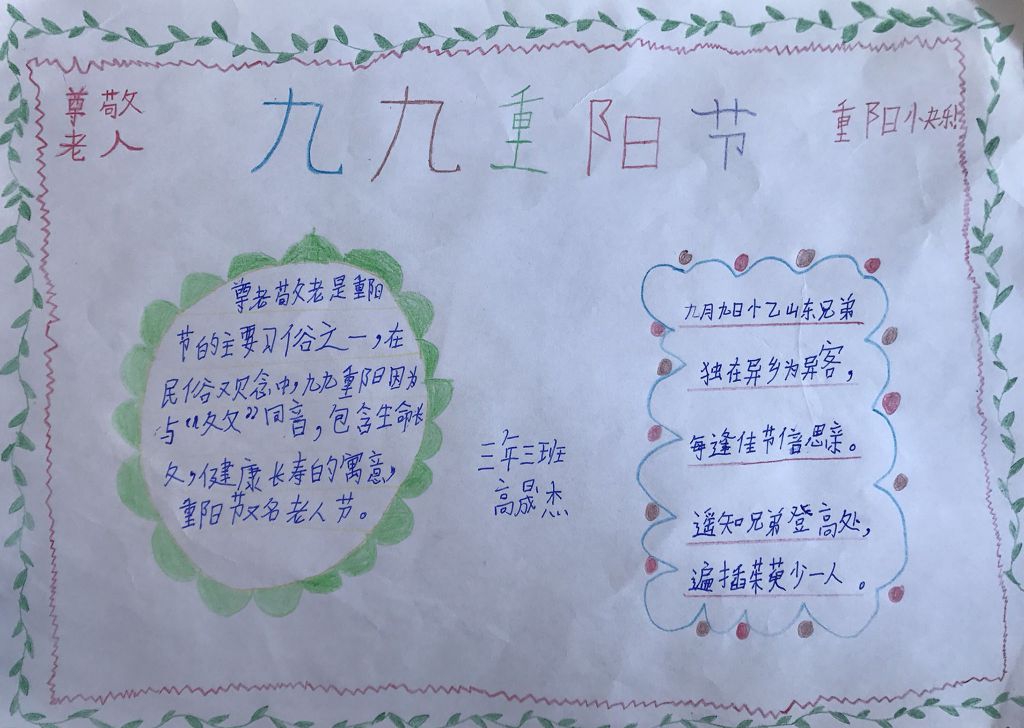 尊敬
老人
九九重阳节
重阳快乐
尊老敬老是重阳
节的主要习俗之一，在
民俗观念中，九九重阳因为
与“久久”同音，包含生命长
久，健康长寿的寓意，
重阳节又名老人节。
三年三班
高晟杰
九月九日忆山东兄弟
独在异乡为异客，
每逢佳节倍思亲。
遥知兄弟登高处，
遍插茱萸少一人。